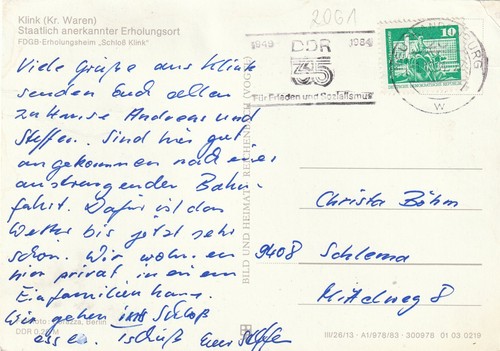 Klink (Kr. Waren)
Staatlich anerkannter Erholungsort
FDGB-Erholungsheim „Schloß Klink“
Viele Grüße aus Klink
senden Euch allen
zu Hause Andreas und
Steffen. Sind hier gut
angekommen nach einer
anstrengenden Bahn-
fahrt. Dafür ist das
Wetter bis jetzt sehr
schön. Wir wohnen
hier privat in einem
Einfamilienhaus.
Wir gehen ins Schloß
essen. Tschüß Euer Steffen
Berlin
DDR
BILD UND HEIMAT REICHENBACH (VOGTL)
2061
1949 DDR 1984
35
Für Frieden und Sozialismus
10
DEUTSCHE DEMOKRATISCHE REPUBLIK
BURG
W
Christa Böhm
9408 Schlema
Mittelweg 8
III/26/13 - A1/978/83 - 300978 01 03 0219